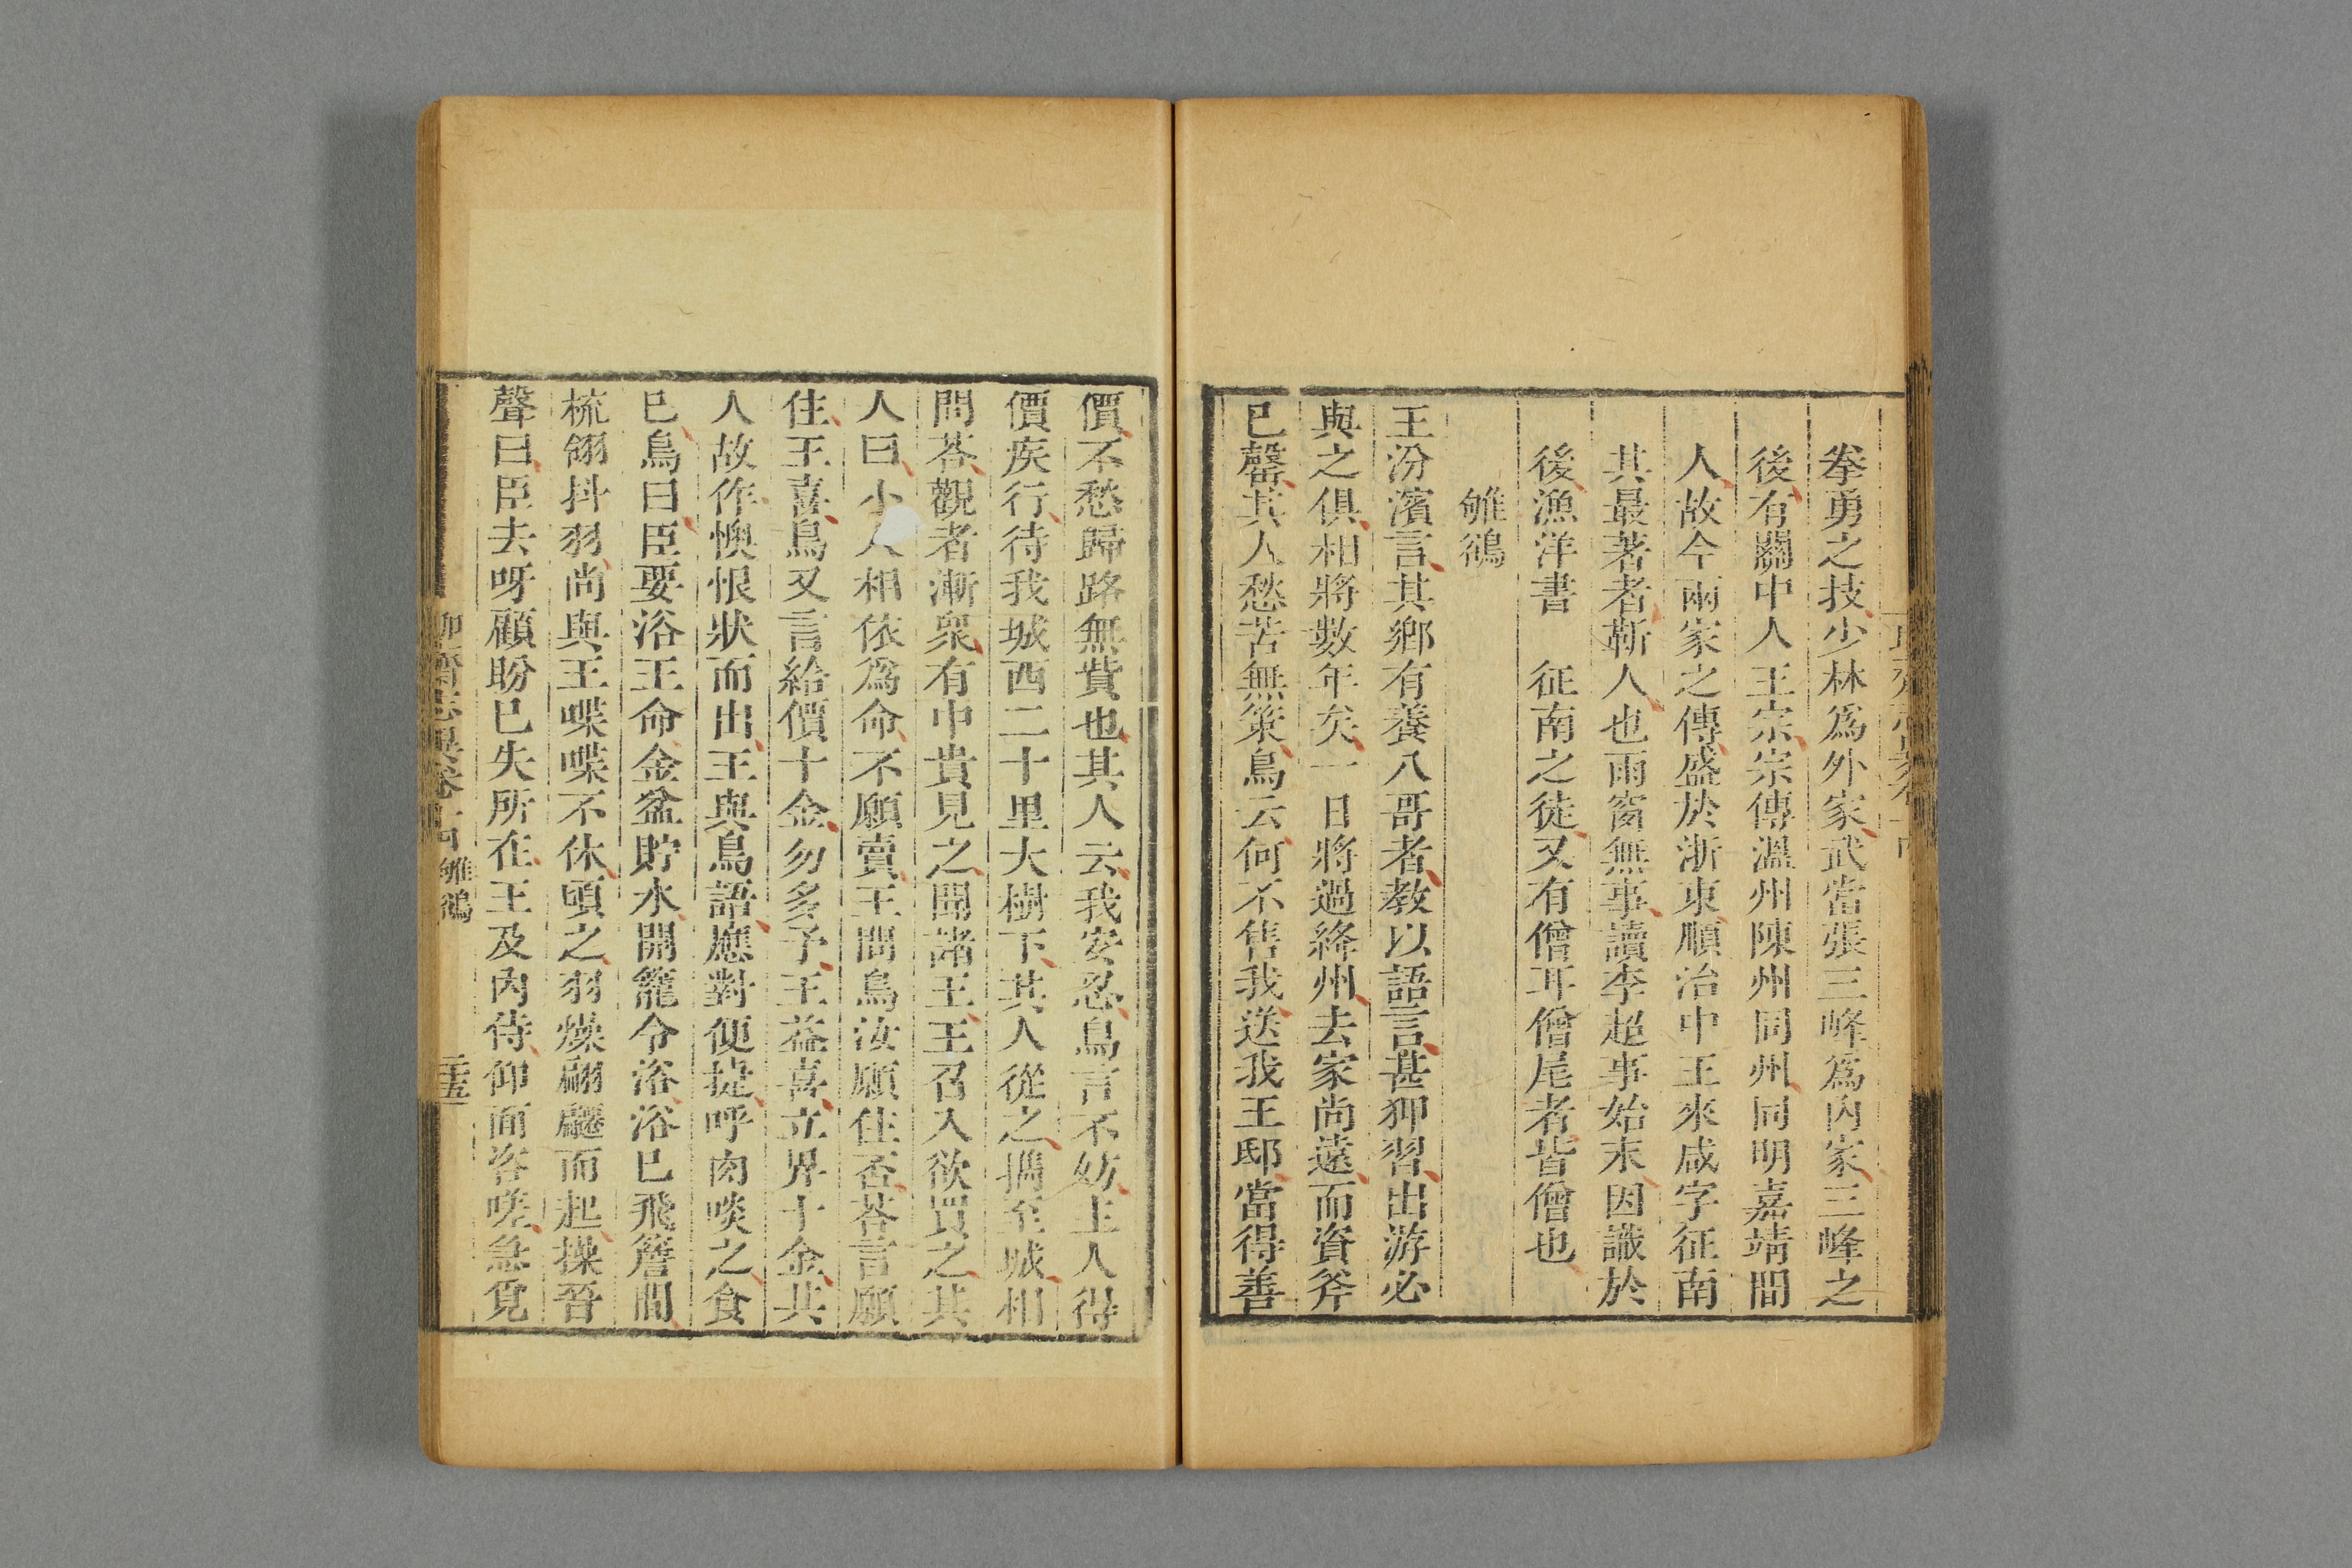 拳勇之技少林爲外家武當張三峰爲內家三峰之
後有關中人王宗宗傳溫州陳州同州同明嘉靖間
人故今兩家之傳盛於浙東順治中王來咸字征南
其最著者鄞人也雨窗無事讀李超事始末因識於
後漁洋書　征南之徒又有僧耳僧尾者皆僧也
雊鵒
王汾濱言其鄉有養八哥者教以語言甚狎習出游必
與之俱相將數年矣一日將過絳州去家尚遠而資斧
已罄其人愁苦無策鳥云何不售我送我王邸當得善
價不愁歸路無貲也其人云我安忍鳥言不妨主人得
價疾行待我城西二十里大樹下其人從之攜至城相
問荅觀者漸衆有中貴見之聞諸王王召入欲買之其
人曰小人相依爲命不願賣王問鳥汝願住否荅言願
住王喜鳥又言給價十金勿多予王益喜立畀十金其
人故作懊恨狀而出王與鳥語應對便捷呼肉啖之食
已鳥曰臣要浴王命金盆貯水開籠令浴浴已飛簷間
梳翎抖羽尚與王喋喋不休頃之羽燥翩躚而起操晉
聲曰臣去呀顧盼已失所在王及內侍仰面咨嗟急覓
聊齋志異卷十四 雊鵒 三十五